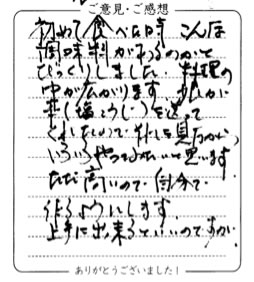 ご意見・ご感想
初めて食べた時 こんな
調味料があるのかと
びっくりしました. 料理の
中が広がります
(塩こうじ)を送って
くれたので
いろいろやってみたいと思います
ただ 高いので 自分で
作るようにします.
上手に出来るといいのですが.
ありがとうございました!